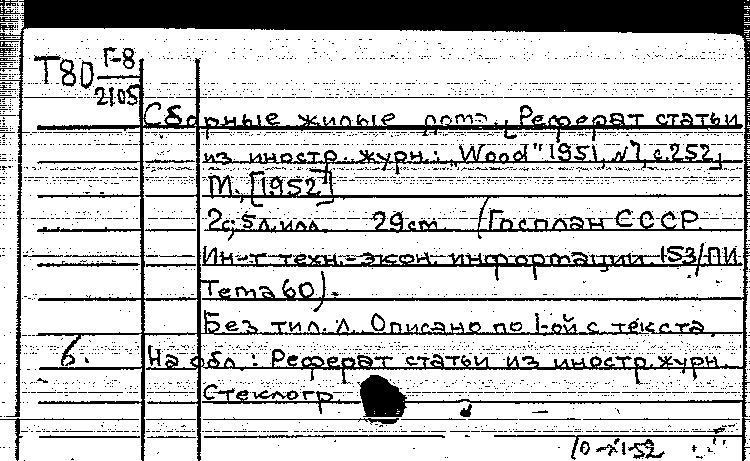 Т80 Г-8
2105
Сборные жилые дома. [Реферат статьи
из иностр. журн.: „Wood" 1951, №7, с.252,
М., [1952]
2с; 5л.илл. 29cm. (Госплан СССР.
Ин-т техн.-экон. информации 153/ПИ
Тема 60).
Без тит. л. Описано по 1-ой с текста.
6. На обл.: Реферат статьи из иностр. журн.
Стеклогр.
10-XI-52